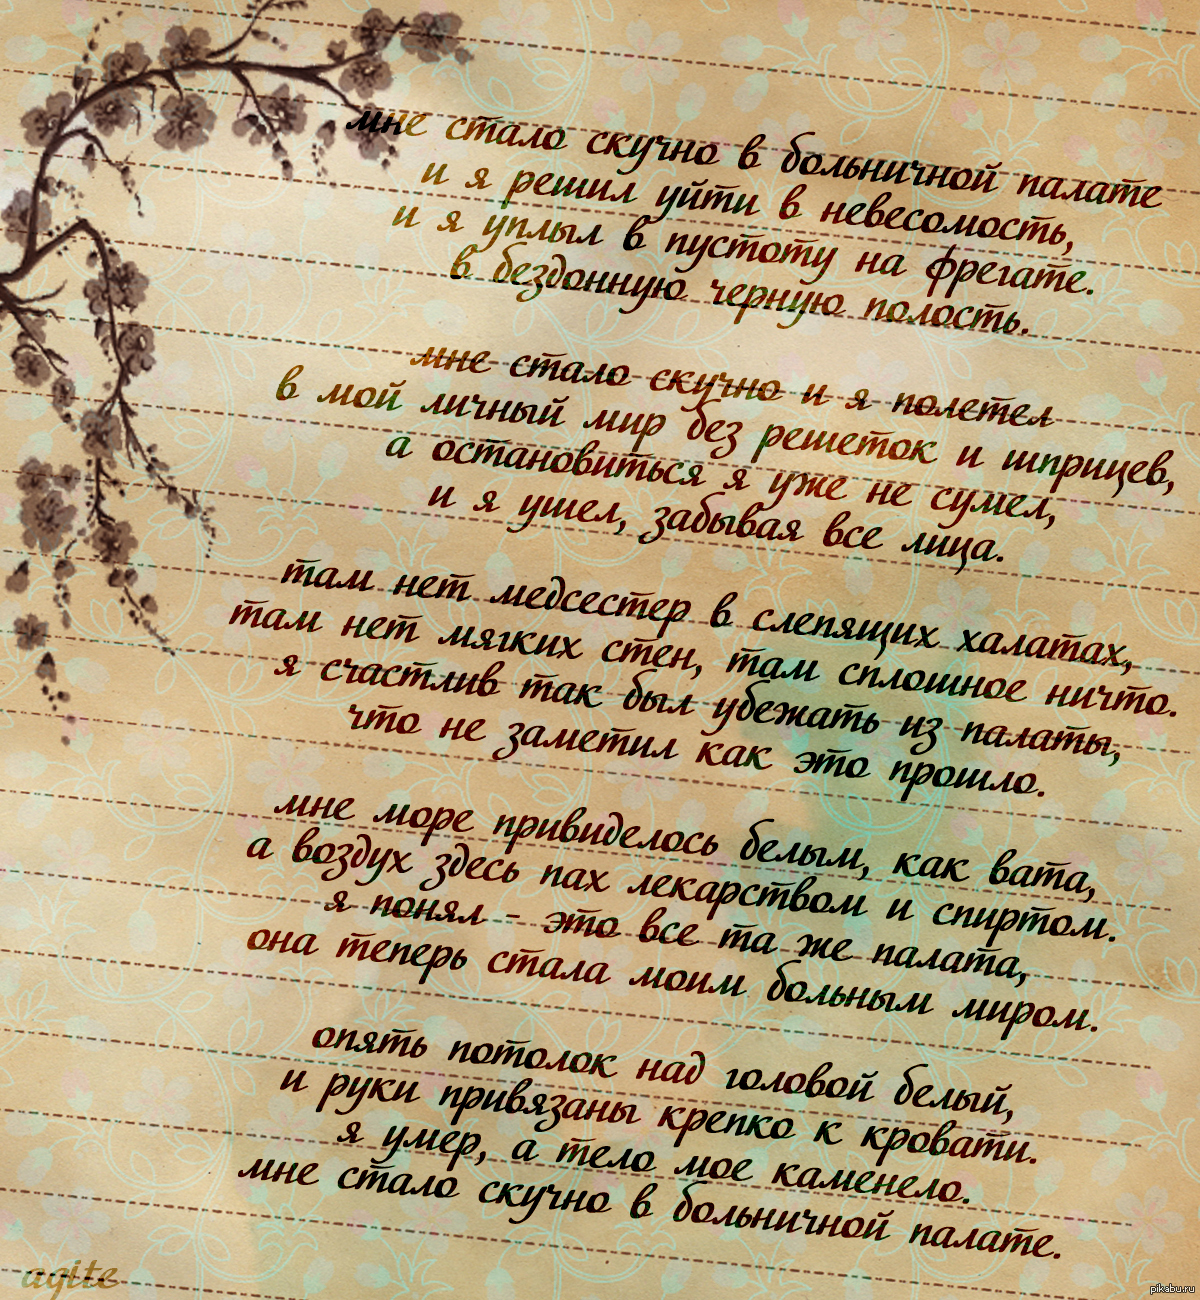 мне стало скучно в больничной палате
и я решил уйти в невесомость,
и я уплыл в пустоту на фрегате.
в бездонную черную полость.
мне стало скучно и я полетел
в мой личный мир без решеток и шприцев,
а остановиться я уже не сумел,
и я ушел, забывая все лица.
там нет медсестер в слепящих халатах,
там нет мягких стен, там сплошное ничто.
я счастлив так был убежать из палаты,
что не заметил как это прошло.
мне море привиделось белым, как вата,
а воздух здесь пах лекарством и спиртом.
я понял - это все та же палата,
она теперь стала моим больным миром.
опять потолок над головой белый,
и руки привязаны крепко к кровати.
я умер, а тело мое каменело.
мне стало скучно в больничной палате.
agite
pikabu.ru